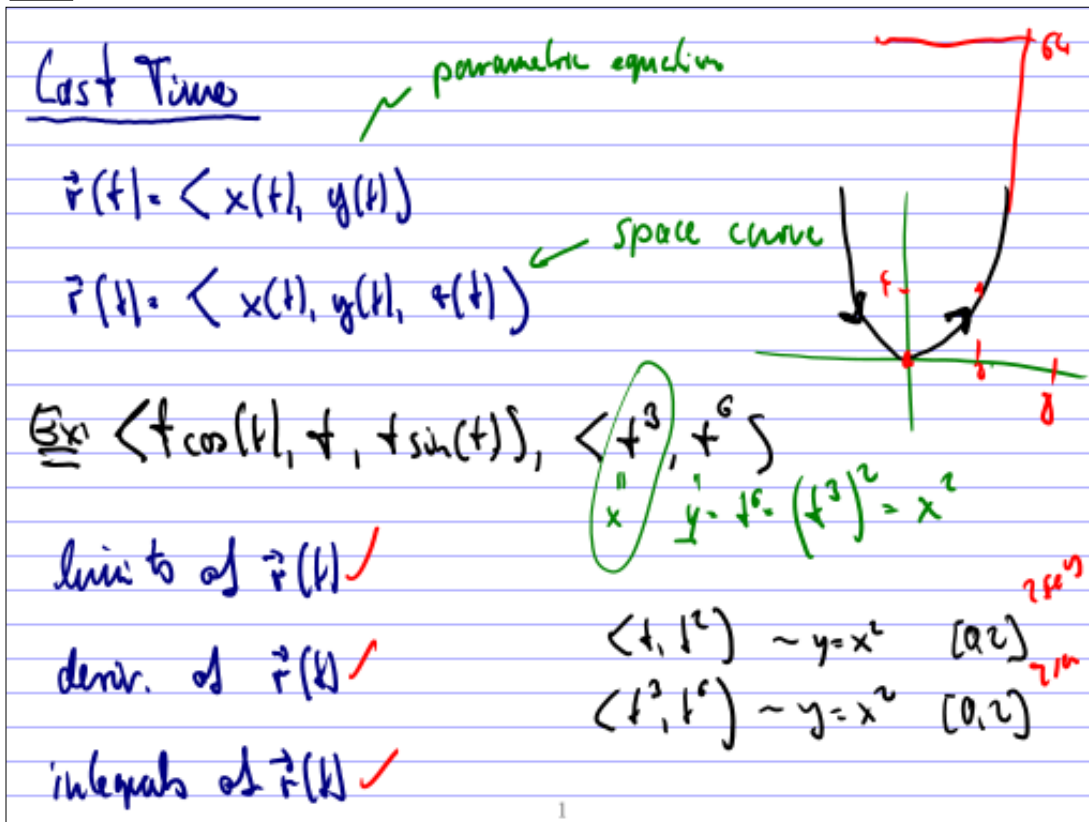 Last Time
parametric equation
r⃗(t) = < x(t), y(t) >
space curve
r⃗(t) = < x(t), y(t), z(t) >
64
4
2
8
Ex: < t cos(t), t, t sin(t) >, < t³, t⁶ >
x y = t⁶ = (t³)² = x²
limits of r⃗(t) ✓
deriv. of r⃗(t) ✓
integrals of r⃗(t) ✓
< t, t² > ~ y = x² [0,2]
< t³, t⁶ > ~ y = x² [0,2]
1